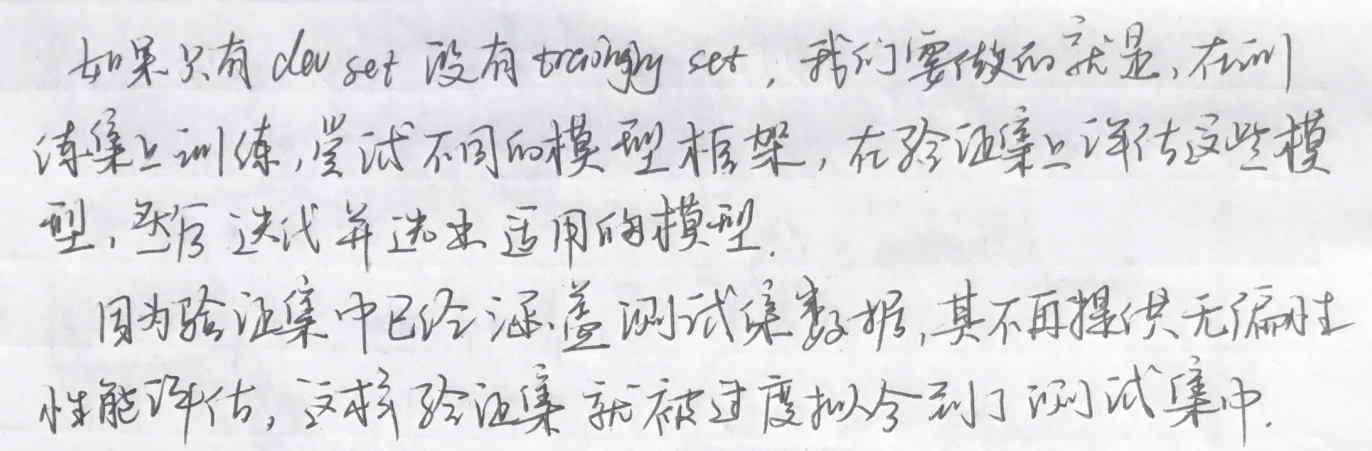 如果只有 dev set 没有 training set，我们要做的就是，在训
练集上训练，尝试不同的模型框架，在验证集上评估这些模
型，然后迭代并选出适用的模型．
因为验证集中已经涵盖测试集数据，其不再提供无偏性
性能评估，这样验证集就被过度拟合到了测试集中．